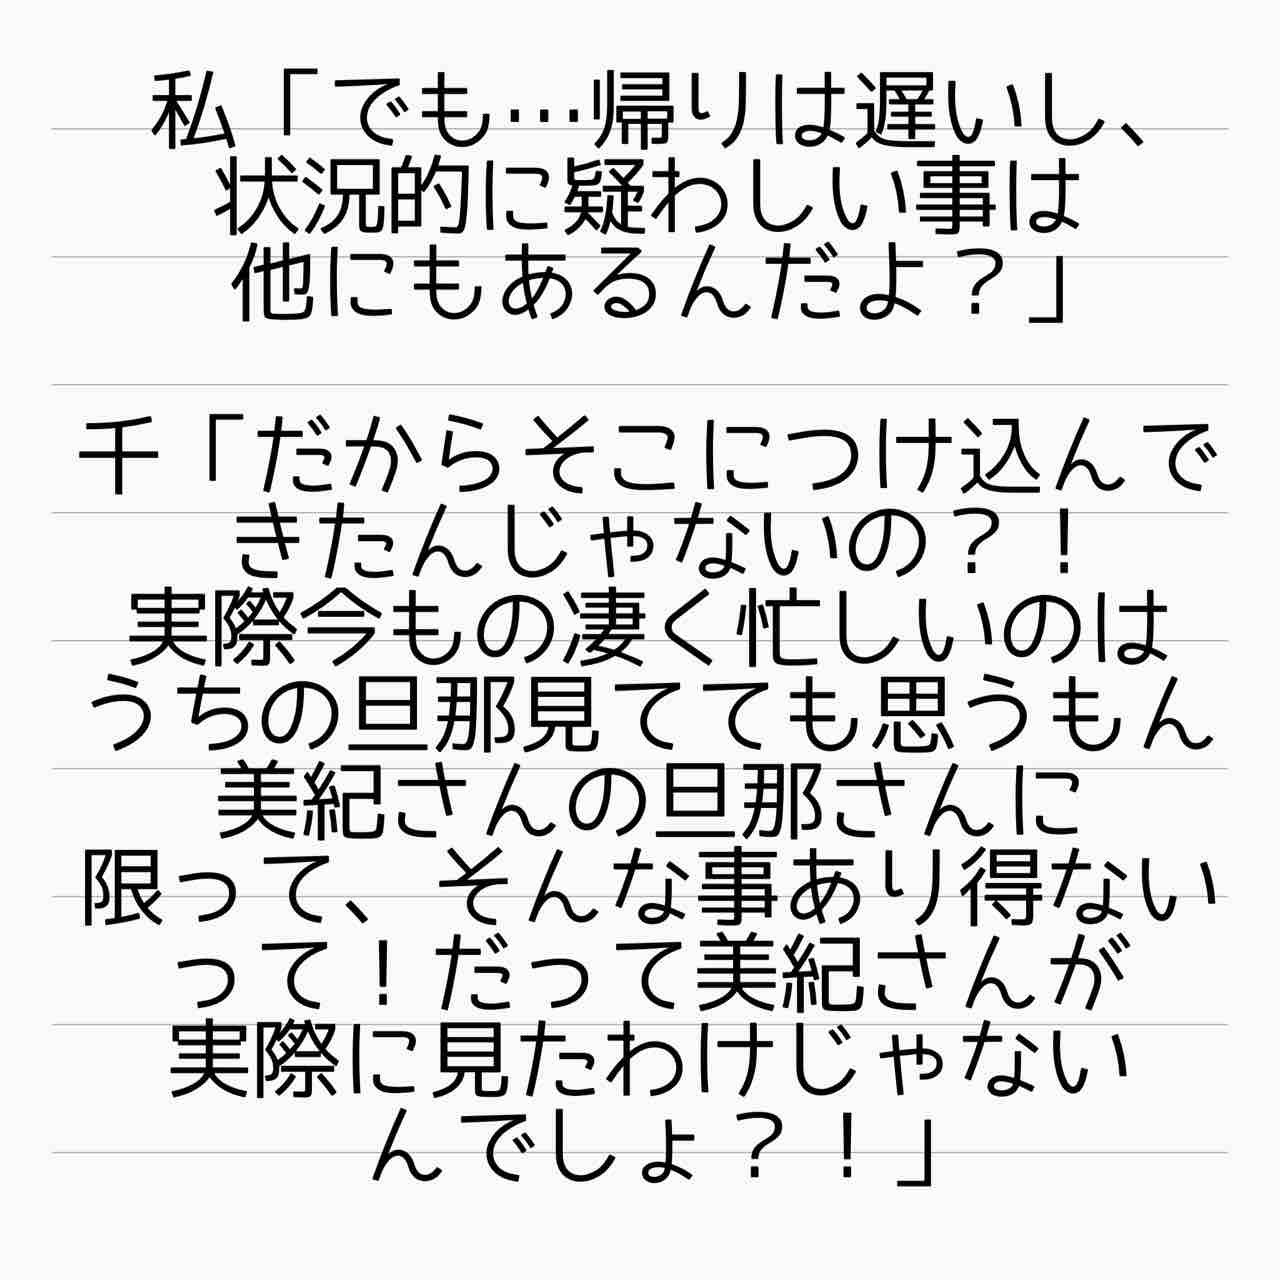 私「でも…帰りは遅いし、
状況的に疑わしい事は
他にもあるんだよ？」
千「だからそこにつけ込んで
きたんじゃないの？！
実際今もの凄く忙しいのは
うちの旦那見てても思うもん
美紀さんの旦那さんに
限って、そんな事あり得ない
って！だって美紀さんが
実際に見たわけじゃない
んでしょ？！」